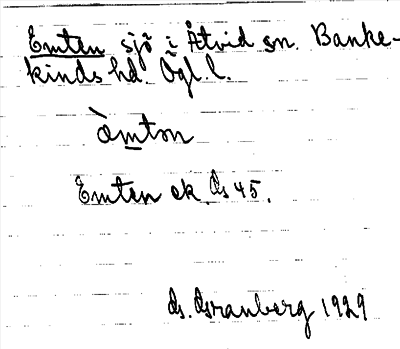 Emten sjö i Åtvid sn. Banke-
kinds hd. Ögl. l.
òmton
Emten ek. ds 45.
ds. Granberg 1929